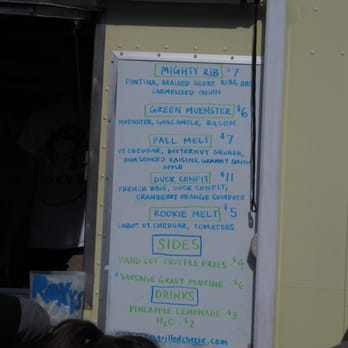 MIGHTY RIB $7
FONTINA, BRAISED SHORT RIBS, BBQ
CARMELIZED ONION
GREEN MUENSTER $6
MUENSTER, GUACAMOLE, BACON
FALL MELT $7
VT CHEDDAR, BUTTERNUT SQUASH,
RUM SOAKED RAISINS, GRANNY SMITH
APPLE
DUCK CONFIT $11
FRENCH BRIE, DUCK CONFIT,
CRANBERRY ORANGE COMPOTE
ROOKIE MELT $5
CABOT VT CHEDDAR, TOMATOES
SIDES
HAND CUT TRUFFLE FRIES $4
SAUSAGE GRAVY POUTINE $6
DRINKS
PINEAPPLE LEMONADE - $3
H2O - $2
grilledcheese.com
ROXY'S